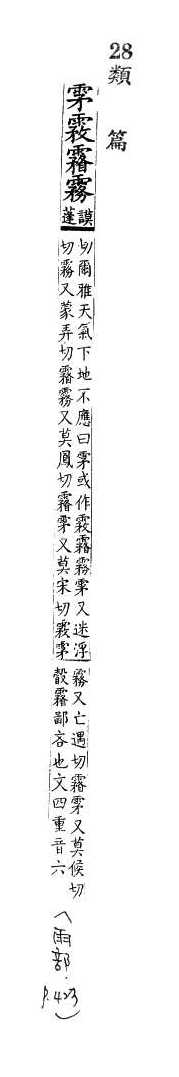 28
類篇
雺霚霿霧
謨
蓬
切爾雅天氣下地不應曰雺或作霚霿霧雺又迷浮
切霧又蒙弄切霿霧又莫鳳切霿雺又莫宋切霚雺
霧又亡遇切霿雺又莫候切
瞉霿鄙吝也文四重音六
(雨部.
p.423)